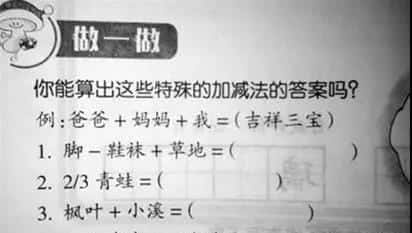 做一做
你能算出这些特殊的加减法的答案吗?
例:爸爸+妈妈+我=(吉祥三宝)
1. 脚-鞋袜+草地=( )
2. 2/3 青蛙=( )
3. 枫叶+小溪=( )